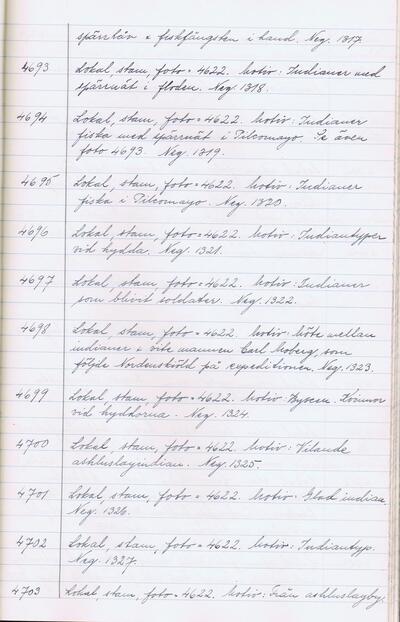 spärrhåv o fiskfångsten i hand. Neg. 1317.
4693 Lokal, stam, foto = 4622. Motiv: Indianer med
spärrnät i floden. Neg. 1318.
4694 Lokal, stam, foto = 4622. Motiv: Indianer
fiska med spärrnät i Pilcomayo. Se även
foto 4693 Neg. 1319.
4695 Lokal, stam, foto = 4622. Motiv: Indianer
fiska i Pilcomayo. Neg. 1320.
4696 Lokal, stam, foto = 4622. Motiv: Indiantyper
vid hydda. Neg. 1321.
4697 Lokal, stam, foto = 4622. Motiv: Indianer
som blivit soldater. Neg. 1322.
4698 Lokal, stam, foto = 4622. Motiv: Möte mellan
indianer o vite mannen Carl Moberg, som
följde Nordenskiöld på expeditionen. Neg. 1323.
4699 Lokal, stam, foto = 4622. Motiv: Byscen. Kvinnor
vid hyddorna. Neg. 1324.
4700 Lokal, stam, foto = 4622. Motiv: Vilande
ashluslayindian. Neg. 1325.
4701 Lokal, stam, foto = 4622. Motiv: Glad indian.
Neg. 1326.
4702 Lokal, stam, foto = 4622. Motiv: Indiantyp.
Neg. 1327.
4703 Lokal stam, foto = 4622. Motiv: Från ashluslayby.